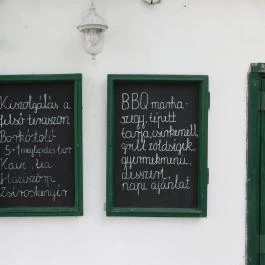 Kiszolgálás a
felső teraszon
Borkóstoló
5+1 meglepetés bor
Kávé, tea
Háziszörp
Zsíroskenyér
BBQ marha-
szegy, tépett
tarja, csirkemell,
grill zöldségek,
gyermekmenü,
desszert,
napi ajánlat